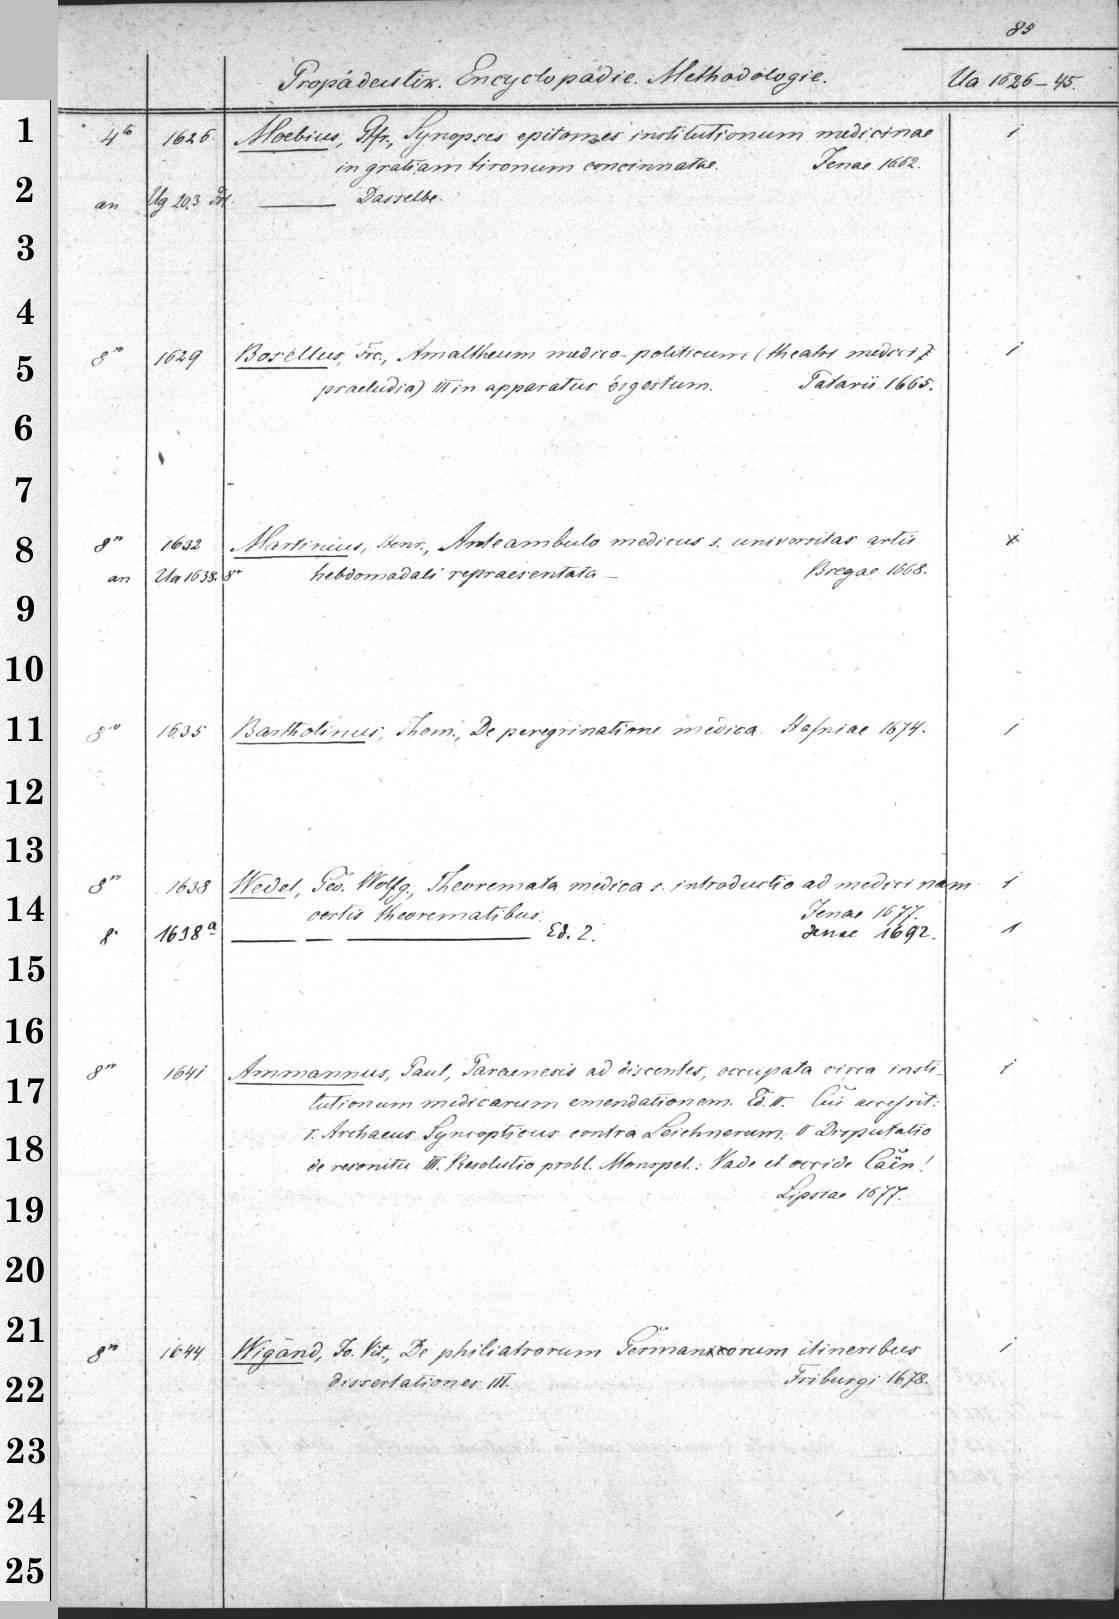 85
Propädeutik. Encyclopädie. Methodologie. Ua 1626-45.
1 4to 1626 Moebius, Gfr., Synopses epitomes institutionum medicinae 1
in gratiam tironum concinnatae. Jenae 1662.
2 an Ug 203 Fol. ——— Dasselbe.
3
4
5 8vo 1629 Bosellus, Frc., Amaltheum medico-politicum (theatri medici 1
praeludia) III in apparatus digestum. Patavii 1665.
6
7
8 8vo 1632 Martinius, Henr., Anteambulo medicus s. universitas artis x
an Ua 1638. 8vo hebdomadali repraesentata — Bregae 1668.
9
10
11 8vo 1635 Bartholinus, Thom., De peregrinatione medica. Hafniae 1674. 1
12
13
14 8vo 1638 Wedel, Geo. Wolfg., Theoremata medica s. introductio ad medicinam 1
certis theorematibus. Jenae 1677.
8. 1638a ——— — ——— Ed. 2. Jenae 1692. 1
15
16
17 8vo 1641 Ammannus, Paul, Paraenesis ad discentes, occupata circa insti- 1
tutionum medicarum emendationem. Ed. II. Cui accessit:
18 I. Archaeus Syncopticus contra Leichnerum. II Disputatio
de resonitu III. Resolutio probl. Monspel.: Vade et occide Caïn!
19 Lipsiae 1677.
20
21
8vo 1644 Wigand, Jo. Vit., De philiatrorum Germanorum itineribus 1
22 dissertationes III. Friburgi 1678.
23
24
25